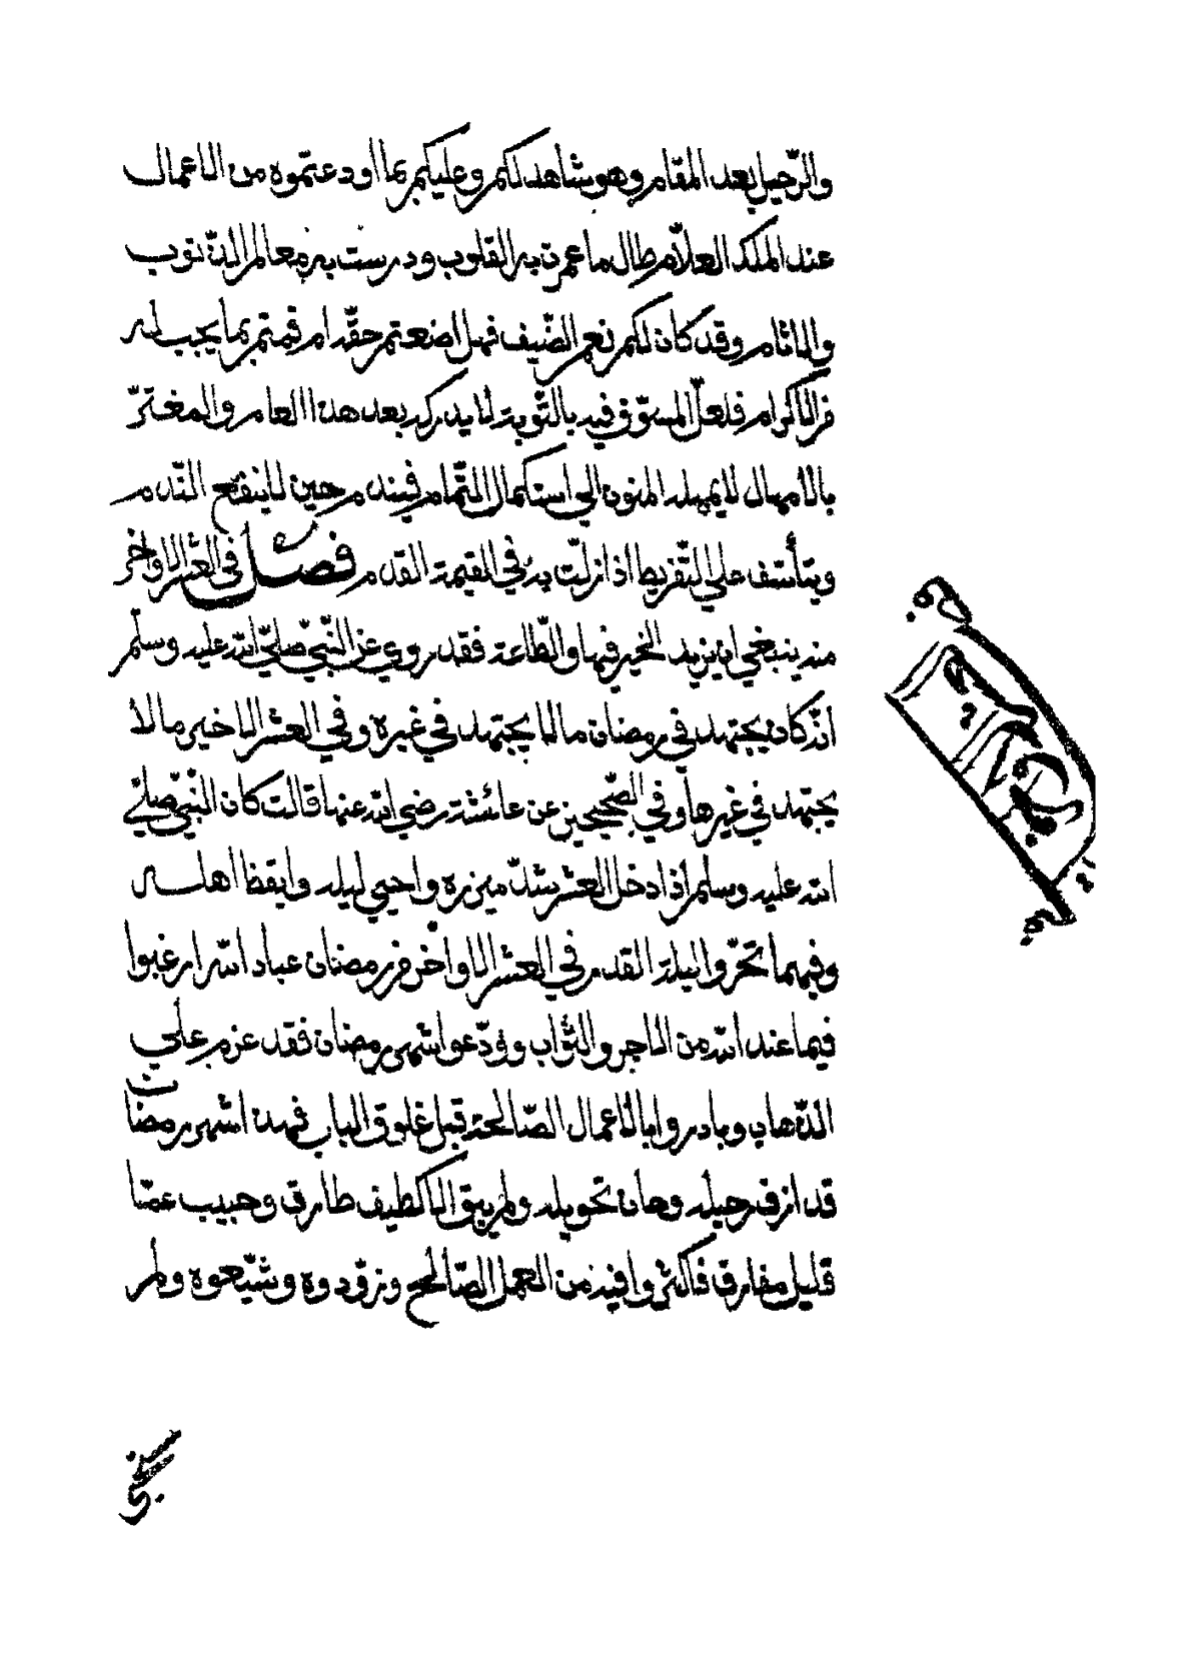 والرّحيل بعد المقام وهو شاهد لكم وعليكم بما اودعتموه من الاعمال
عند الملك العلّام طال ما عمرت به القلوب ودرست به معالم الذّنوب
والاثام وقد كان لكم نعم الضّيف فهل اضعتم حقّه ام قمتم بما يجب له
من الاكرام فلعلّ المسوّف فيه بالتّوبة لا يدركه بعد هذا العام والمغترّ
بالامهال لا يمهله المنون الى استكمال التّمام فيندم حين لا ينفع النّدم
ويتأسّف على التّفريط اذا زلّت به في القيمة القدم فصل في العشر الاواخر
منه ينبغي ان يزيد الخير فيها والطّاعة فقد روي عن النّبيّ صلّى الله عليه وسلّم
انّه كان يجتهد في رمضان ما لا يجتهد في غيره وفي العشر الاخير ما لا
يجتهد في غيرها وفي الصّحيحين عن عائشة رضي الله عنها قالت كان النّبيّ صلّى
الله عليه وسلّم اذا دخل العشر شدّ ميزره واحيى ليله وايقظ اهله
وفيهما تحرّوا ليلة القدر في العشر الاواخر من رمضان عباد الله ارغبوا
فيما عند الله من الاجر والثّواب وودّعوا شهر رمضان فقد عزم على
الذّهاب وبادروا بالاعمال الصّالحة قبل غلوق الباب فهذا شهر رمضان
قد ازف رحيله وحان تحويله ولم يبق الا كطيف طارق وحبيب عمّا
قليل مفارق فاكثروا فيه من العمل الصّالح وزوّدوه وشيّعوه ولم